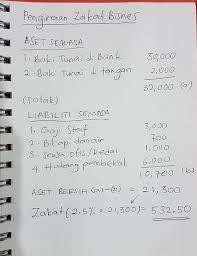 Pengiraan Zakat Bisnes
ASET SEMASA
1. Baki Tunai di Bank 30,000
2. Baki Tunai di tangan 2,000
32,000 (a)
(Tolak)
LIABILITI SEMASA
1. Gaji Staf 3,000
2. Bil api dan air 700
3. Sewa ofis/kedai 1,000
4. Hutang pembekal 6,000
10,700 (b)
ASET BERSIH (a) - (b) = 21,300
Zakat (2.5% x 21,300) = 532.50